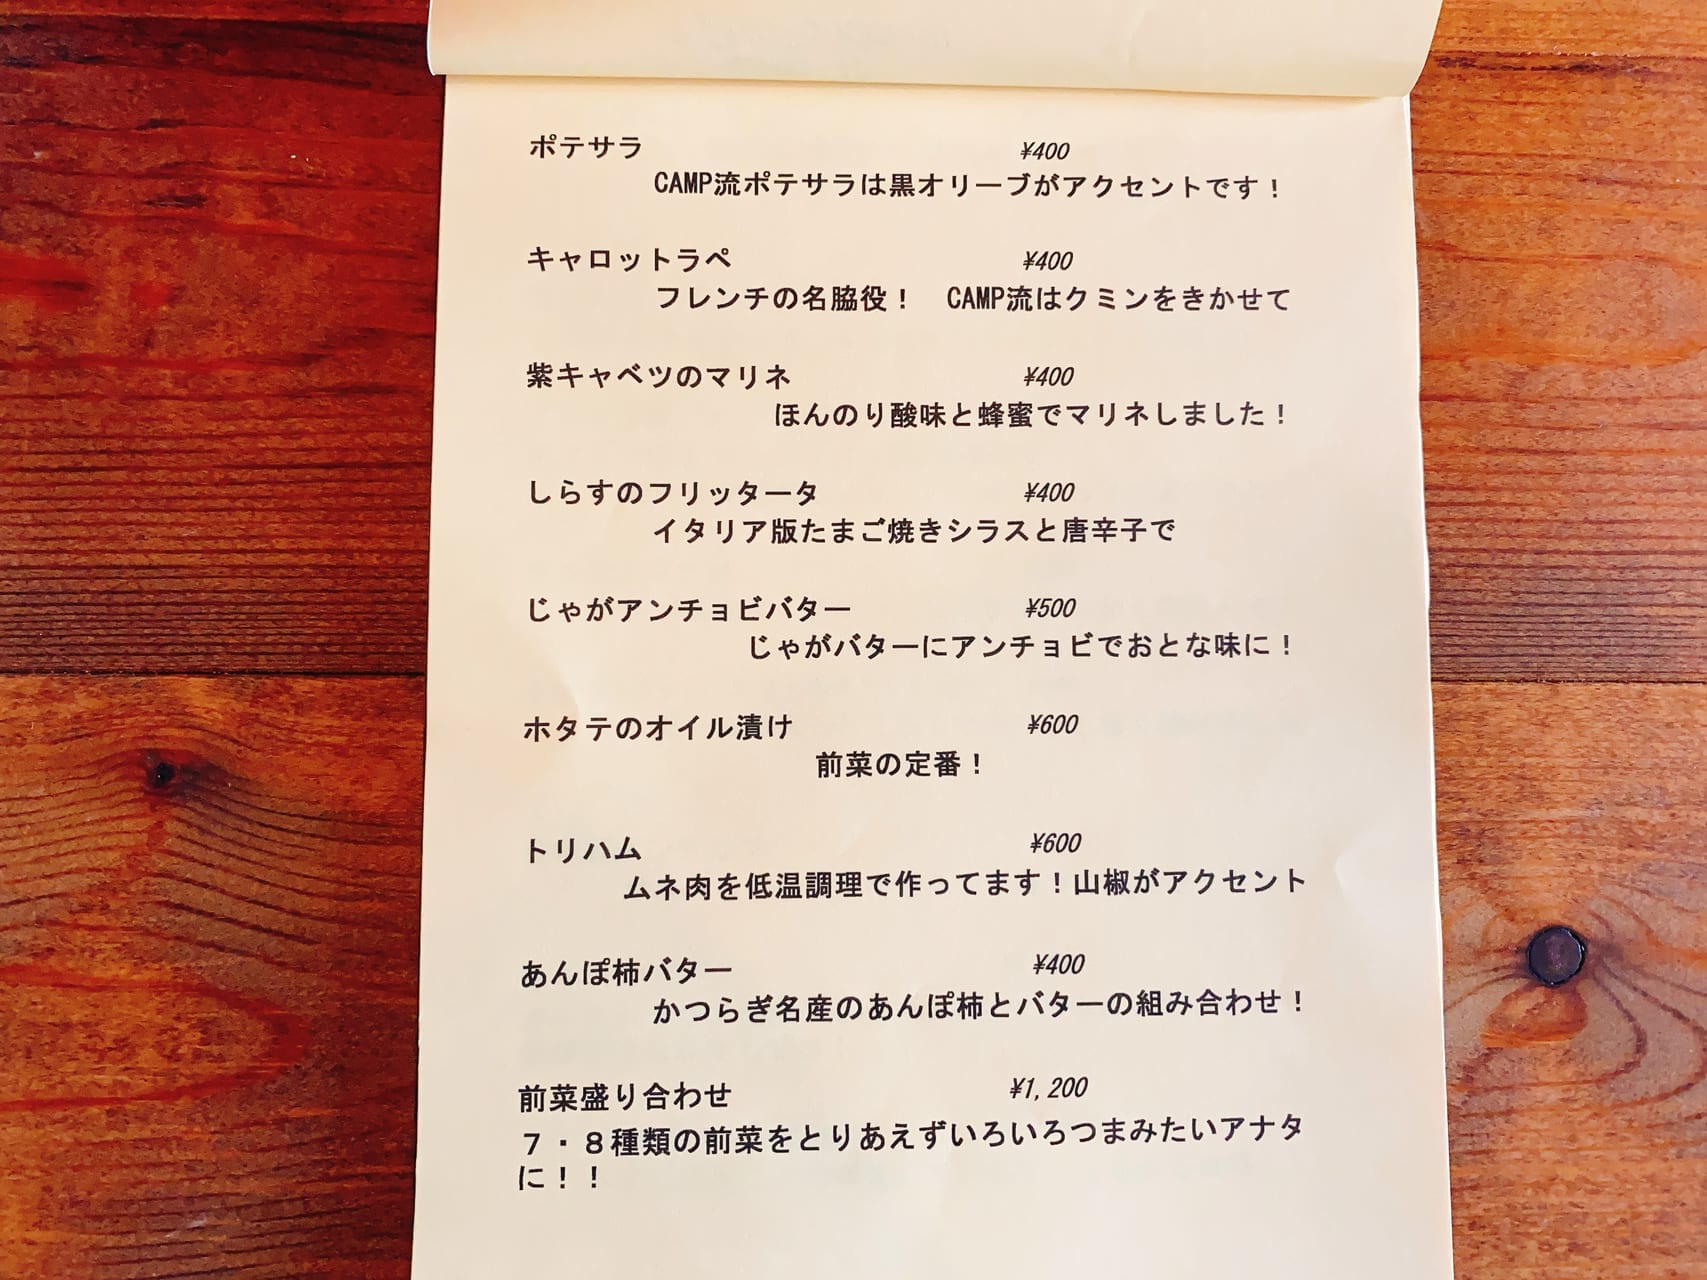 ポテサラ ¥400
CAMP流ポテサラは黒オリーブがアクセントです！
キャロットラペ ¥400
フレンチの名脇役！　CAMP流はクミンをきかせて
紫キャベツのマリネ ¥400
ほんのり酸味と蜂蜜でマリネしました！
しらすのフリッタータ ¥400
イタリア版たまご焼きシラスと唐辛子で
じゃがアンチョビバター ¥500
じゃがバターにアンチョビでおとな味に！
ホタテのオイル漬け ¥600
前菜の定番！
トリハム ¥600
ムネ肉を低温調理で作ってます！山椒がアクセント
あんぽ柿バター ¥400
かつらぎ名産のあんぽ柿とバターの組み合わせ！
前菜盛り合わせ ¥1,200
７・８種類の前菜をとりあえずいろいろつまみたいアナタ
に！！